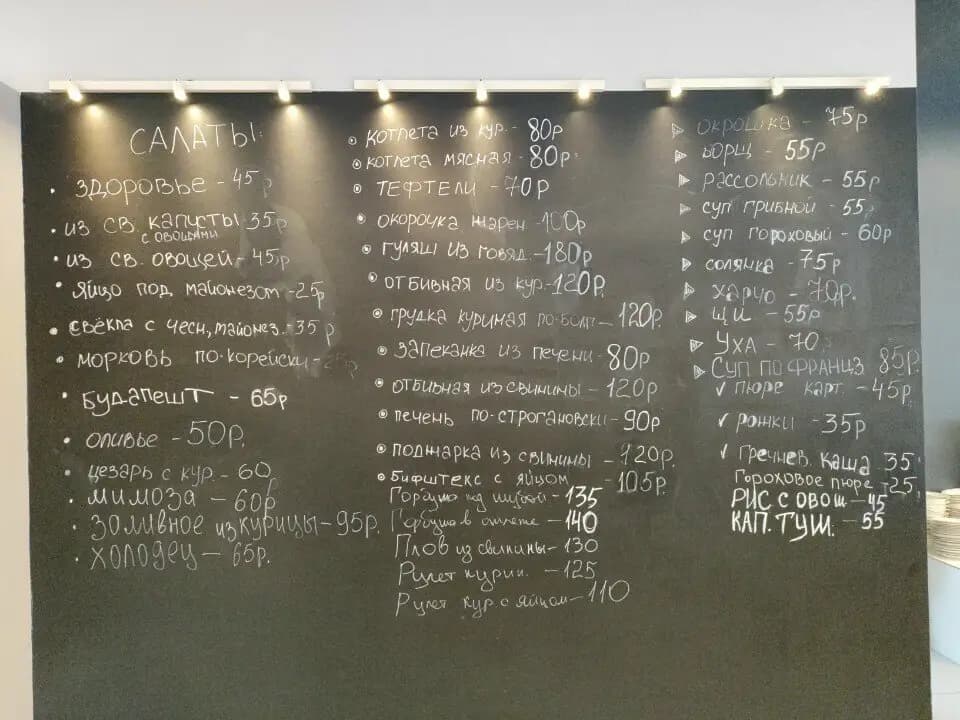 САЛАТЫ:
• ЗДОРОВЬЕ - 45р
• ИЗ СВ. КАПУСТЫ 35р
С ОВОЩАМИ
• ИЗ СВ. ОВОЩЕЙ - 45р
• ЯЙЦО ПОД МАЙОНЕЗОМ - 25р
• СВЁКЛА С ЧЕСН, МАЙОНЕЗ. - 35р
• МОРКОВЬ ПО-КОРЕЙСКИ -
• БУДАПЕШТ - 65р
• ОЛИВЬЕ - 50р.
• ЦЕЗАРЬ С КУР. - 60
• МИМОЗА - 60р
• ЗАЛИВНОЕ ИЗ КУРИЦЫ - 95р.
• ХОЛОДЕЦ - 65р.
КОТЛЕТА ИЗ КУР. - 80р
КОТЛЕТА МЯСНАЯ - 80р
ТЕФТЕЛИ - 70р
ОКОРОЧКА ЖАРЕН - 100р
ГУЛЯШ ИЗ ГОВЯД. - 180р
ОТБИВНАЯ ИЗ КУР. - 120р.
ГРУДКА КУРИНАЯ ПО-БОЛГ - 120р.
ЗАПЕКАНКА ИЗ ПЕЧЕНИ 80р
ОТБИВНАЯ ИЗ СВИНИНЫ - 120р
ПЕЧЕНЬ ПО-СТРОГАНОВСКИ - 90р
ПОДЖАРКА ИЗ СВИНИНЫ - 120р.
БИФШТЕКС С ЯЙЦОМ - 105р.
Горбуша под шубой - 135
Горбуша в омлете - 140
Плов из свинины - 130
Рулет курин. - 125
Рулет кур с яйцом - 110
ОКРОШКА - 75р
БОРЩ - 55р
РАССОЛЬНИК - 55р
СУП ГРИБНОЙ - 55
СУП ГОРОХОВЫЙ - 60р
СОЛЯНКА - 75р
ХАРЧО - 70р.
ЩИ - 55р
УХА - 70
СУП ПО ФРАНЦУЗ 85р.
✓ ПЮРЕ КАРТ. - 45р.
✓ РОЖКИ - 35р
✓ ГРЕЧНЕВ. КАША 35
ГОРОХОВОЕ ПЮРЕ - 25
РИС С ОВОЩ - 45
КАП. ТУШ. - 55